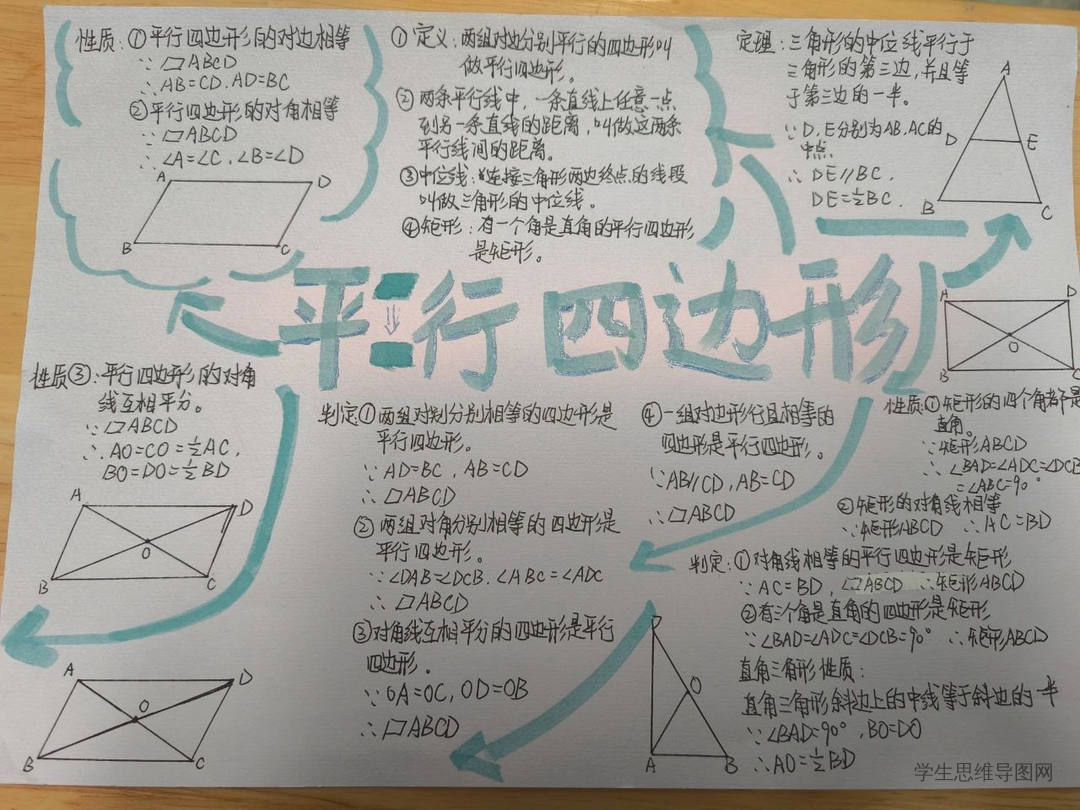 性质:①平行四边形的对边相等
∵▱ABCD
∴AB=CD.AD=BC
②平行四边形的对角相等
∵▱ABCD
∴∠A=∠C.∠B=∠D
A D
B C
①定义:两组对边分别平行的四边形叫
做平行四边形。
②两条平行线中,一条直线上任意一点
到另一条直线的距离,叫做这两条
平行线间的距离。
③中位线:连接三角形两边终点的线段
叫做三角形的中位线。
④矩形:有一个角是直角的平行四边形
是矩形。
定理:三角形的中位线平行于
三角形的第三边,并且等
于第三边的一半。
∵D,E分别为AB,AC的
中点
∴DE∥BC.
DE=½BC.
A
D E
B C
平行四边形
A D
O
B C
性质③:平行四边形的对角
线互相平分。
∵▱ABCD
∴AO=CO=½AC,
BO=DO=½BD
A D
O
B C
A D
O
B C
判定①两组对别分别相等的四边形是
平行四边形。
∵AD=BC,AB=CD
∴▱ABCD
②两组对角分别相等的四边形是
平行四边形。
∵∠DAB=∠DCB.∠ABC=∠ADC
∴▱ABCD
③对角线互相平分的四边形是平行
四边形.
∵OA=OC,OD=OB
∴▱ABCD
④一组对边形行且相等的
四边形是平行四边形。
∵AB∥CD,AB=CD
∴▱ABCD
性质①矩形的四个角都是
直角。
∵矩形ABCD
∴∠BAD=∠ADC=∠DCB
=∠ABC=90°
②矩形的对角线相等
∵矩形ABCD ∴AC=BD
判定:①对角线相等的平行四边形是矩形
∵AC=BD,▱ABCD ∴矩形ABCD
②有三个角是直角的四边形是矩形
∵∠BAD=∠ADC=∠DCB=90° ∴矩形ABCD
直角三角形性质:
直角三角形斜边上的中线等于斜边的一半
∵∠BAD=90°,BO=DO
∴AO=½BD
D
O
A B
学生思维导图网